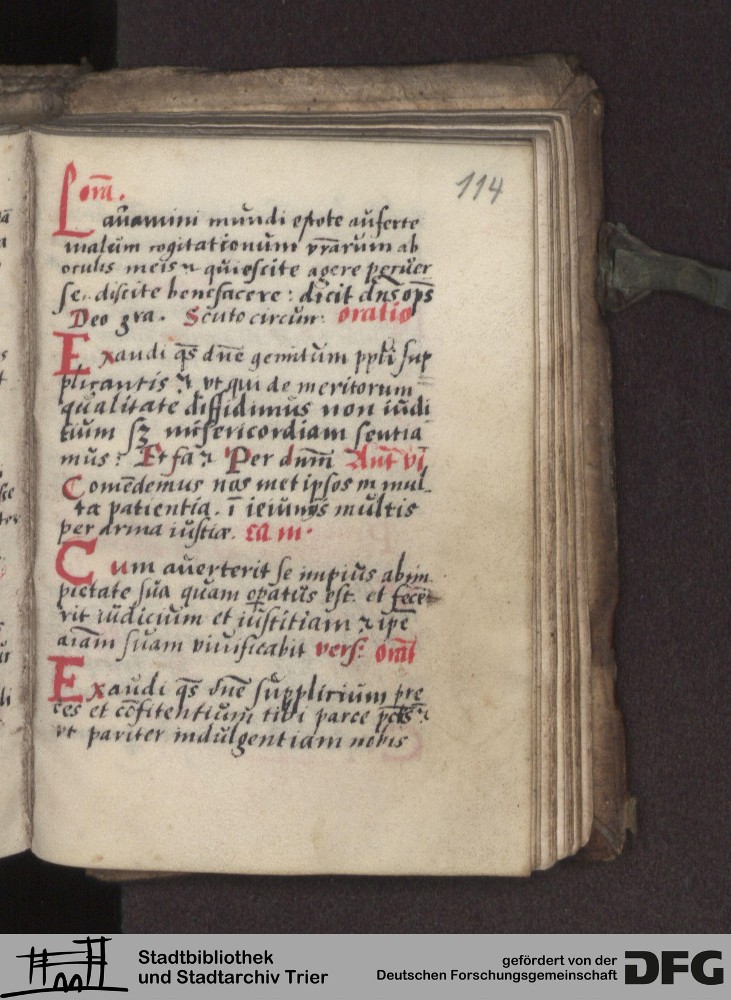 114
orā.
Lauamini mundi estote auferte
malum cogitationum vrārum ab
oculis meis quiescite agere peruer
se. discite benefacere: dicit dn̄s op̄s
Deo gra. Scuto circum: oratio
Exaudi qs dn̄e gemitum ppli sup
plicantis ⁊ vt qui de meritorum
qualitate diffidimus non iudi
cium sꝫ misericordiam sentia
mus: Et fa⁊ Per dnm̄ Ant̄ vi
Comēdemus nos met ipsos in mul
ta patientia. ī ieiunijs multis
per arma iusticie. ca m.
Cum auerterit se impius ab im
pietate sua quam opatus est et fece
rit iudicium et iustitiam ⁊ ipe
aīam suam viuificabit vers: orat̄
Exaudi qs dn̄e supplicium pre
ces et cōfitentium tibi parce pctīs ⁊
vt pariter indulgentiam nobis
Stadtbibliothek
und Stadtarchiv Trier
gefördert von der
Deutschen Forschungsgemeinschaft
DFG